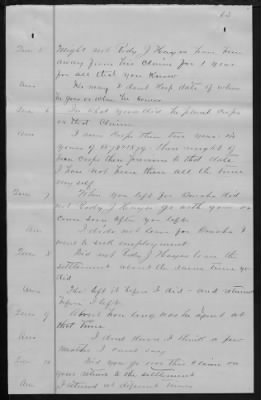 62
Ques 5 Might not Eddy J Thayer have been
away from his Claim for 1 year
for all that you know
Ans He may I dont keep date of when
he goes or when he comes
Ques 6 In what year did he plant crops
on that Claim
Ans I seen crops there two
years of there might of
been crops there previous to that date
I have not been there all the time
my self
Ques 7 When you left for did
not Eddy J Thayer go with you or
come soon after you left
Ans I did not leave for I
went to seek employment
Ques 8 Did not Eddy J Thayer leave the
settlement about the same time you
did
Ans He left it before I did - and returned
before I left
Ques 9 About how long was he absent at
that time
Ans I dont know I think a few
months I cant say
Ques 10 Did you go over this Claim on
your return to the settlement
Ans I at different times